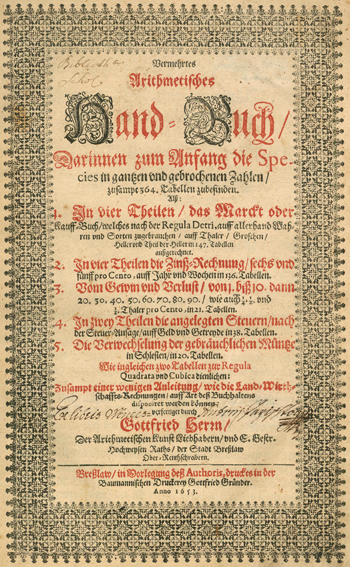 Bibliotheca
Schol.
Vermehrtes
Arithmetisches
Hand-Buch/
Darinnen zum Anfang die Spe-
cies in gantzen und gebrochenen Zahlen/
zusampt 364. Tabellen zubefinden.
Alß:
1. In vier Theilen/ das Marckt oder
Kauff-Buch/welches nach der Regula Detri, auff allerhand Wah-
ren und Sorten zugebrauchen/ auff Thaler/ Groschen/
Heller und Theil der Heller in 147. Tabellen
außgerechnet.
2. In vier Theilen die Zinß-Rechnung/ sechs und
fünff pro Cento, auff Jahr und Wochen in 136. Tabellen.
3. Vom Gewin und Verlust/ von 1. biß 10. dann
20. 30. 40. 50. 60. 70. 80. 90./ wie auch ¼. ½. und
¾. Thaler pro Cento, in 21. Tabellen.
4. In zwey Theilen die angelegten Steuern/nach
der Steuer-Ansage/auff Geld und Getreyde in 38. Tabellen.
5. Die Verwechselung der gebräuchlichen Müntze
in Schlesien/ in 20. Tabellen.
Wie ingleichen zwo Tabellen zur Regula
Quadrata und Cubica dienlichen:
Zusampt einer wenigen Anleitung/ wie die Land-Wirth-
schaffts-Rechnungen/ auff Art deß Buchhaltens
disponiret werden können/
verfertiget durch
Gottfried Herrn/
Der Arithmetischen Kunst Liebhabern/ und E. Gestr.
Hochweysen Raths/ der Stadt Breßlaw
Ober-Renthschreibern.
Breßlaw/ in Vorlegung deß Authoris, druckts in der
Baumannischen Druckerey Gottfried Gründer.
Anno 1653.